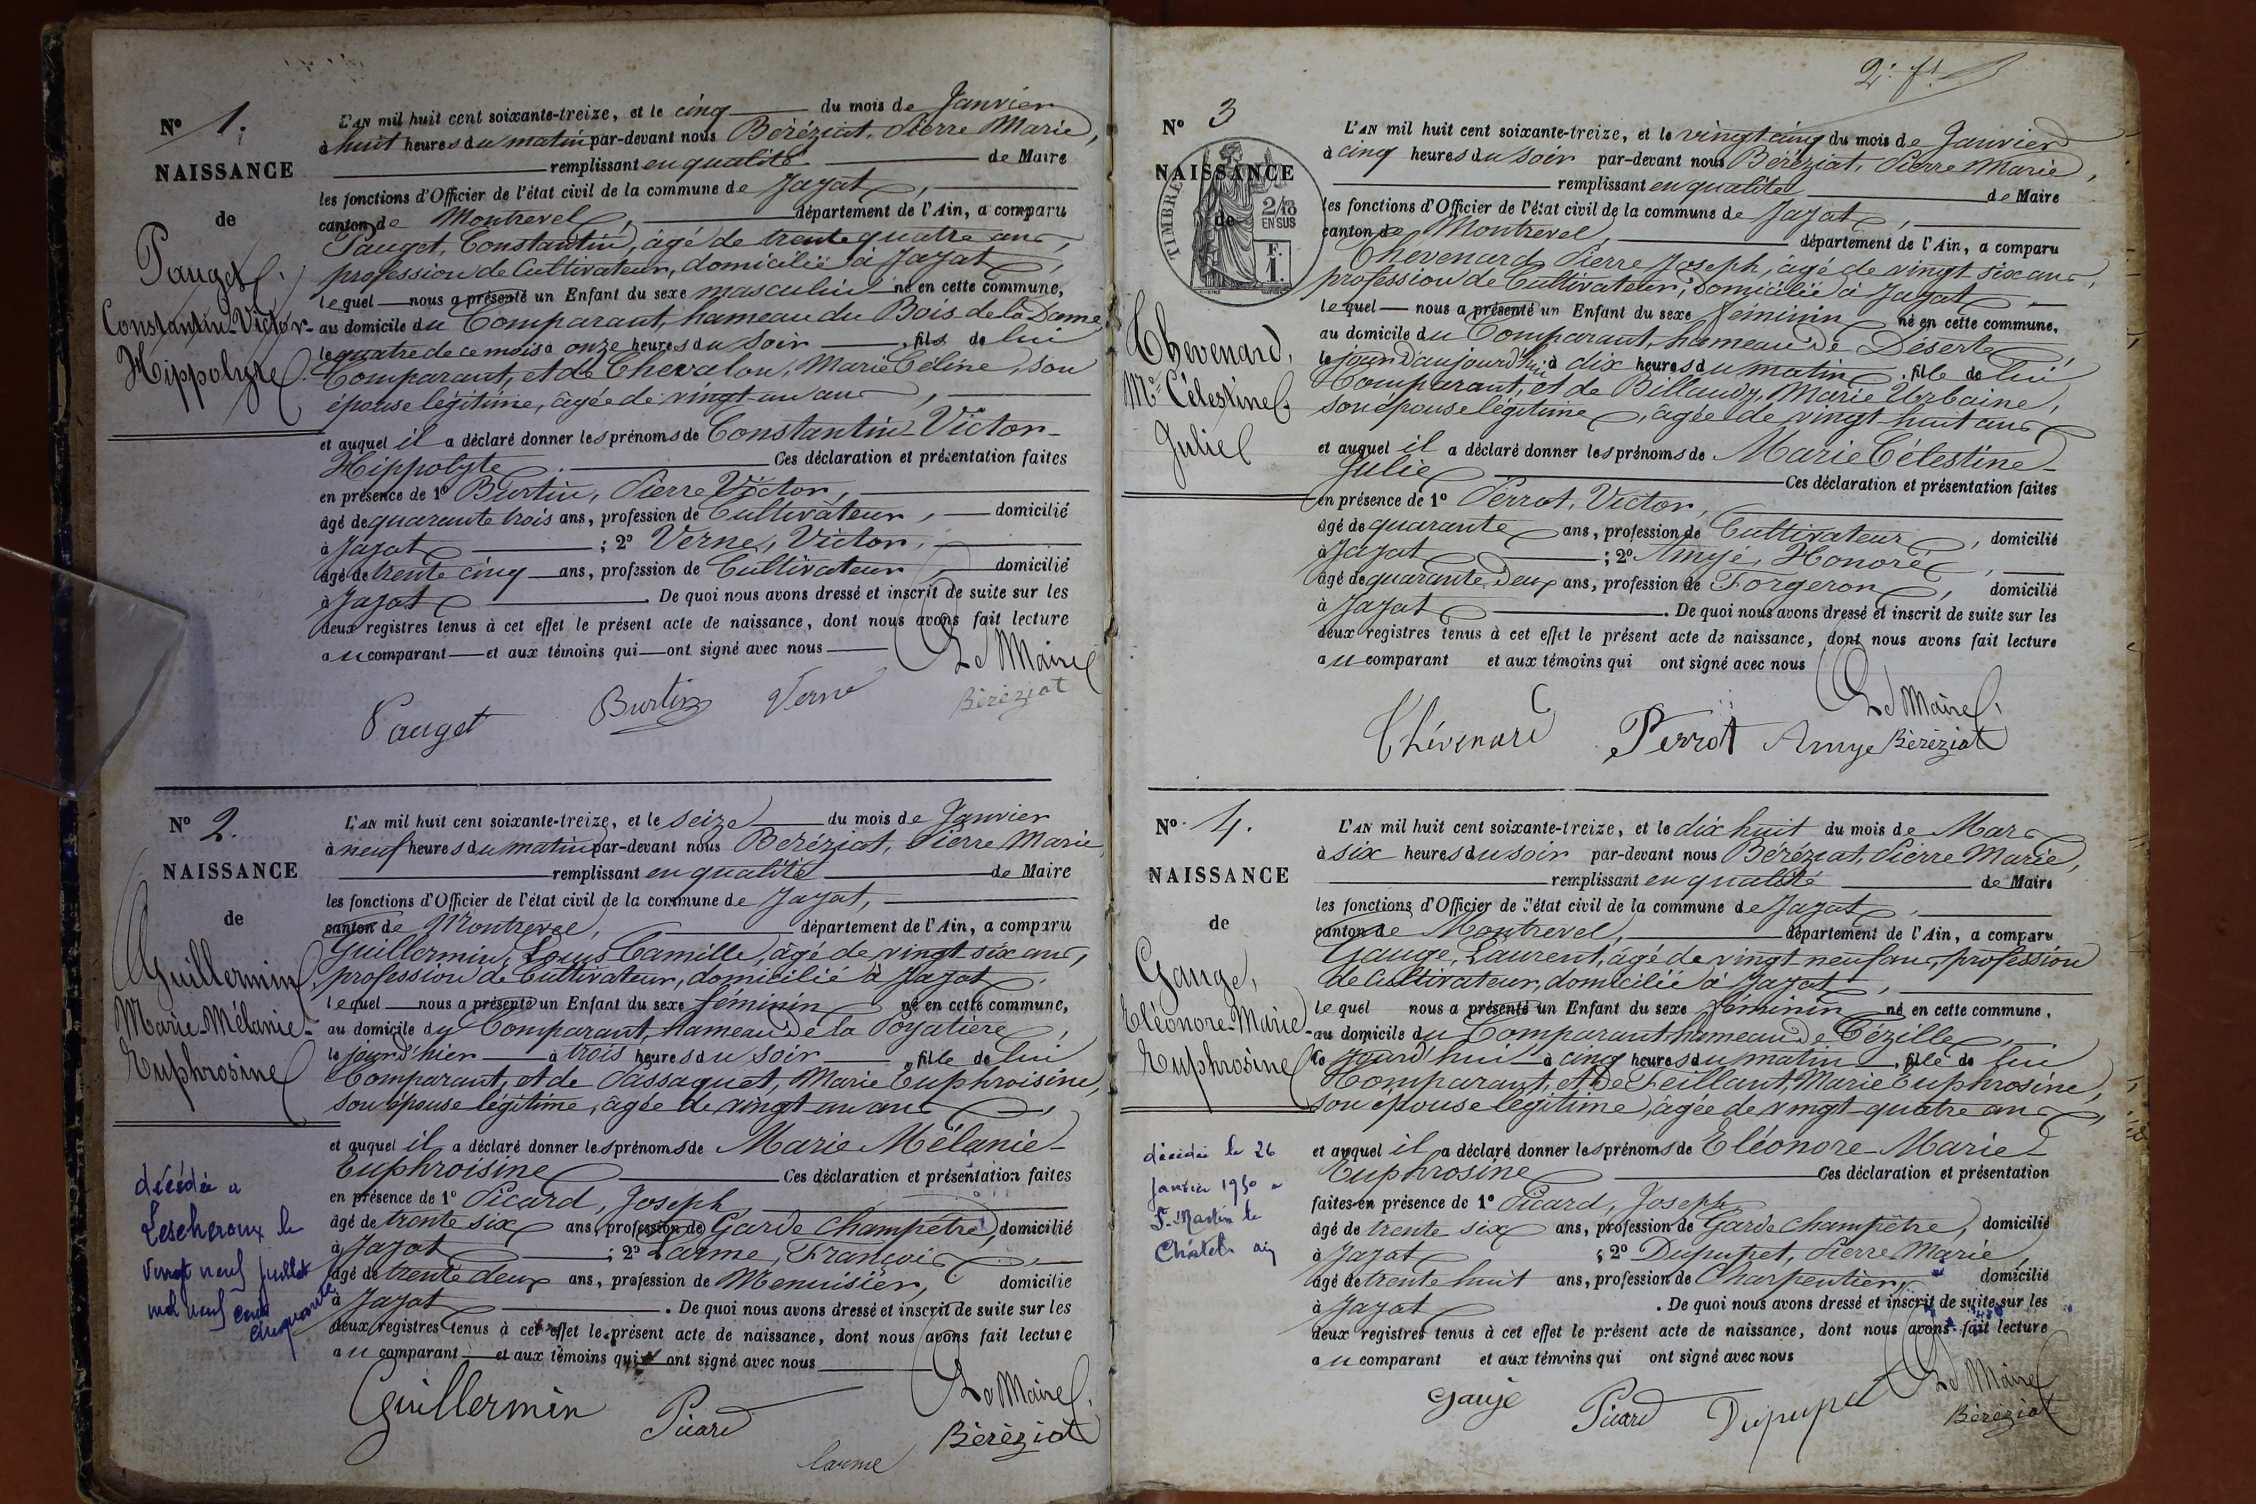 N° 1.
NAISSANCE
de
Pauget
Constantin-Victor-
Hippolyte
L'AN mil huit cent soixante-treize, et le cinq du mois de Janvier
à huit heures du matin par-devant nous Béréziat, Pierre Marie,
remplissant en qualité de Maire
les fonctions d'Officier de l'état civil de la commune de Jayat,
canton de Montrevel, département de l'Ain, a comparu
Pauget, Constantin, âgé de trente quatre ans,
profession de Cultivateur, domicilié à Jayat,
lequel nous a présenté un Enfant du sexe masculin né en cette commune,
au domicile du Comparant, hameau du Bois de la Dame
le quatre de ce mois à onze heures du soir, fils de lui
Comparant, et de Chevalon, Marie Céline, son
épouse légitime, âgée de vingt un ans,
et auquel il a déclaré donner les prénoms de Constantin-Victor-
Hippolyte. Ces déclaration et présentation faites
en présence de 1° Burtin, Pierre Victor,
âgé de quarante trois ans, profession de Cultivateur, domicilié
à Jayat ; 2° Verne, Victor,
âgé de trente cinq ans, profession de Cultivateur, domicilié
à Jayat. De quoi nous avons dressé et inscrit de suite sur les
deux registres tenus à cet effet le présent acte de naissance, dont nous avons fait lecture
au comparant et aux témoins qui ont signé avec nous
Le Maire
Pauget Burtin Verne Béréziat
N° 2.
NAISSANCE
de
Guillermin
Marie-Mélanie-
Euphrosine
décédée a
Lescheroux le
vingt neuf juillet
mil neuf cent
cinquante
L'AN mil huit cent soixante-treize, et le seize du mois de Janvier
à neuf heures du matin par-devant nous Béréziat, Pierre Marie
remplissant en qualité de Maire
les fonctions d'Officier de l'état civil de la commune de Jayat,
canton de Montrevel, département de l'Ain, a comparu
Guillermin, Louis Camille, âgé de vingt six ans,
profession de Cultivateur, domicilié à Jayat,
lequel nous a présenté un Enfant du sexe féminin né en cette commune,
au domicile du Comparant, hameau de la Poyatière,
le jour d'hier à trois heures du soir, fille de lui
Comparant, et de Passaquet, Marie Euphroisine,
son épouse légitime, âgée de vingt un ans,
et auquel il a déclaré donner les prénoms de Marie Mélanie-
Euphroisine Ces déclaration et présentation faites
en présence de 1° Picard, Joseph,
âgé de trente six ans, profession de Garde champêtre, domicilié
à Jayat ; 2° Larme, François,
âgé de trente deux ans, profession de Menuisier, domicilié
à Jayat. De quoi nous avons dressé et inscrit de suite sur les
deux registres tenus à cet effet le présent acte de naissance, dont nous avons fait lecture
au comparant et aux témoins qui ont signé avec nous
Le Maire
Guillermin Picard larme Béréziat
2e ft
N° 3
NAISSANCE
de
TIMBRE
2/10
EN SUS
F.
1.
Thevenard,
Me Célestine
Julie
L'AN mil huit cent soixante-treize, et le vingt cinq du mois de Janvier
à cinq heures du soir par-devant nous Béréziat, Pierre Marie,
remplissant en qualité de Maire
les fonctions d'Officier de l'état civil de la commune de Jayat,
canton de Montrevel, département de l'Ain, a comparu
Thévenard Pierre Joseph, âgé de vingt six ans,
profession de Cultivateur, domicilié à Jayat
lequel nous a présenté un Enfant du sexe féminin né en cette commune,
au domicile du Comparant, hameau de Déserte,
le jour d'aujourd'hui à dix heures du matin, fille de lui
Comparant, et de Billaudy, Marie Urbaine,
son épouse légitime, âgée de vingt huit ans
et auquel il a déclaré donner les prénoms de Marie Célestine-
Julie Ces déclaration et présentation faites
en présence de 1° Perrot, Victor,
âgé de quarante ans, profession de Cultivateur, domicilié
à Jayat ; 2° Amyé, Honoré,
âgé de quarante deux ans, profession de Forgeron, domicilié
à Jayat. De quoi nous avons dressé et inscrit de suite sur les
deux registres tenus à cet effet le présent acte de naissance, dont nous avons fait lecture
au comparant et aux témoins qui ont signé avec nous
Le Maire
Thévenard Perrot Amye Béréziat
N° 4.
NAISSANCE
de
Gauge,
Eléonore-Marie-
Euphrosine
décédée le 26
Janvier 1950 a
St Martin le
Châtel ain
L'AN mil huit cent soixante-treize, et le dix huit du mois de Mars
à six heures du soir par-devant nous Béréziat, Pierre Marie,
remplissant en qualité de Maire
les fonctions d'Officier de l'état civil de la commune de Jayat,
canton de Montrevel, département de l'Ain, a comparu
Gauge, Laurent, âgé de vingt neuf ans, profession
de Cultivateur, domicilié à Jayat,
lequel nous a présenté un Enfant du sexe féminin né en cette commune,
au domicile du Comparant, hameau de Cézille,
Ce jourd'hui à cinq heures du matin, fille de lui
Comparant, et de Feillant, Marie Euphrosine,
son épouse légitime, âgée de vingt-quatre ans,
et auquel il a déclaré donner les prénoms de Eléonore-Marie-
Euphrosine Ces déclaration et présentation
faites en présence de 1° Picard, Joseph
âgé de trente six ans, profession de Garde champêtre, domicilié
à Jayat ; 2° Dupupet, Pierre Marie,
âgé de trente huit ans, profession de Charpentier, domicilié
à Jayat. De quoi nous avons dressé et inscrit de suite sur les
deux registres tenus à cet effet le présent acte de naissance, dont nous avons fait lecture
au comparant et aux témoins qui ont signé avec nous
Le Maire
gauge Picard Dupupet Béréziat